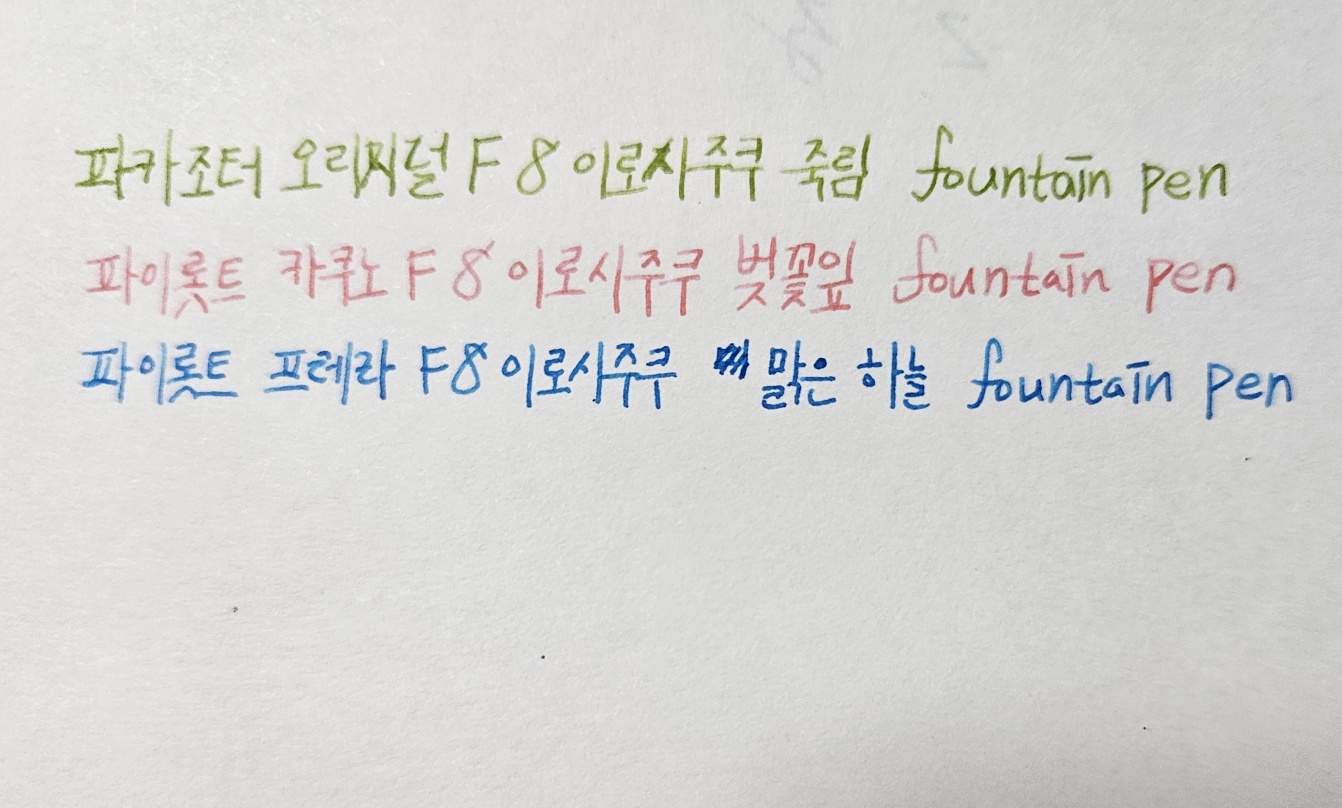 파카조터 오리지널 F 8 이로시주쿠 죽림 fountain pen
파이롯트 카쿠노 F 8 이로시주쿠 벚꽃잎 fountain pen
파이롯트 프레라 F 8 이로시주쿠 맑은 하늘 fountain pen